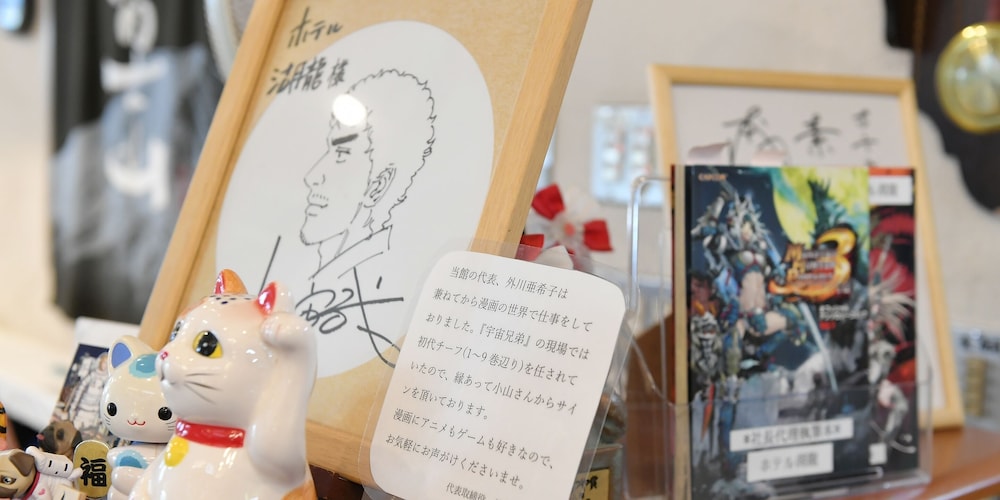 ホテル
湖龍様
当館の代表、外川亜希子は
兼ねてから漫画の世界で仕事をして
おりました。『宇宙兄弟』の現場では
初代チーフ(1~9巻辺り)を任されて
いたので、縁あって小山さんからサイ
ンを頂いております。
漫画にアニメもゲームも好きなので、
お気軽にお声がけくださいませ。
代表取締役
CAPCOM
3
■社長代理執筆■
ホテル湖龍
福